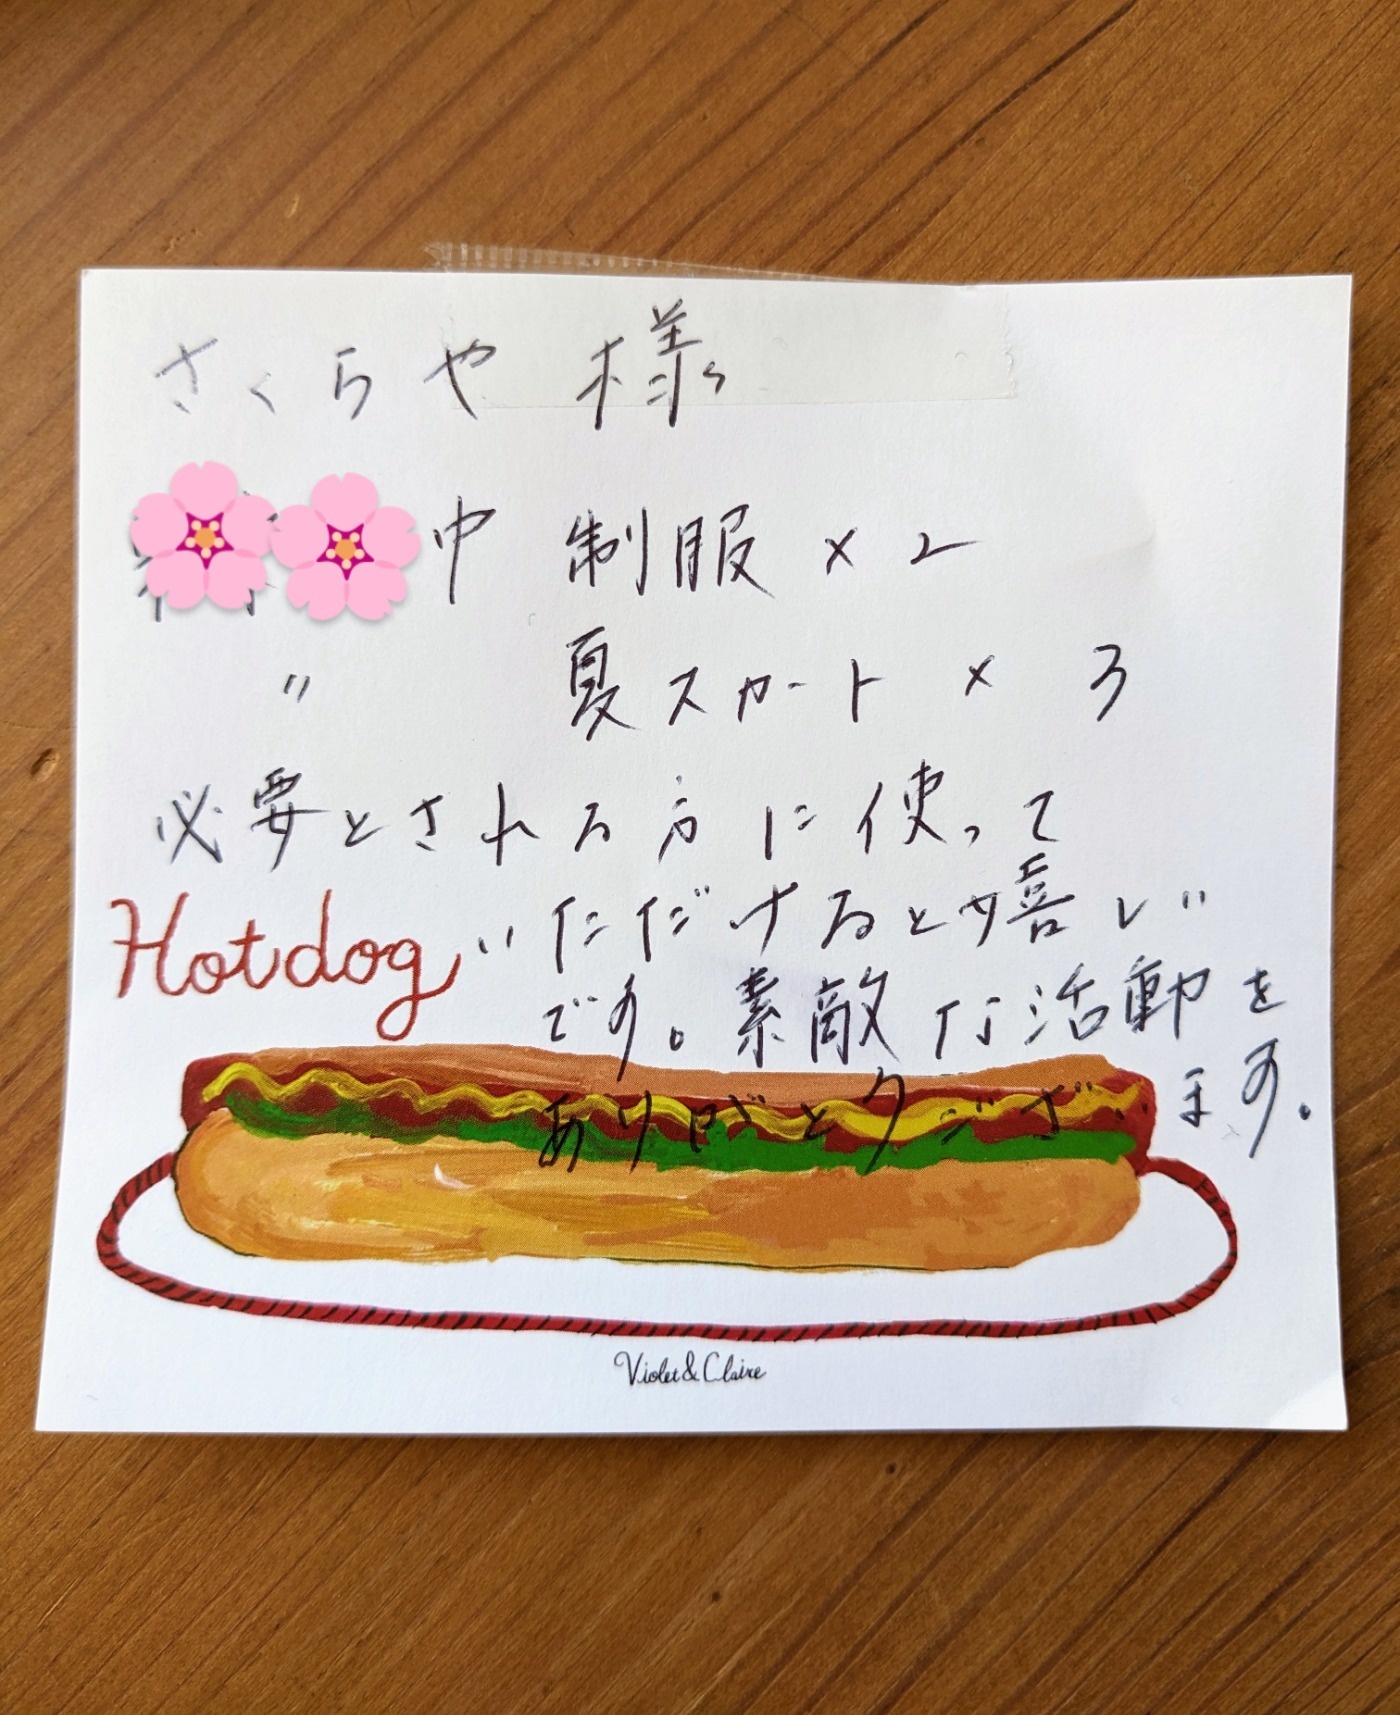 さくらや 様
中 制服 × 2
〃 夏スカート × 3
必要とされる方に使って
Hotdog
いただけると嬉しい
です。素敵な活動を
ありがとうございます。
Violet & Claire